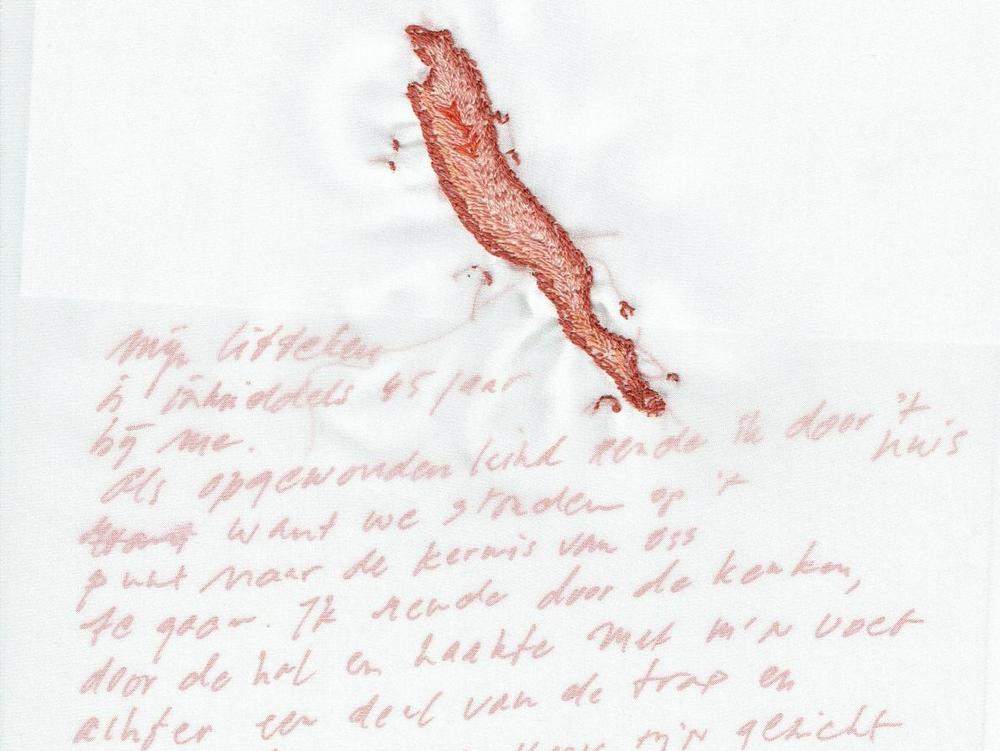 mijn litteken
is inmiddels 45 jaar
bij me.
Als opgewonden kind rende ik door 't huis
want we stonden op 't
punt naar de kermis van Oss
te gaan. Ik rende door de keuken,
door de hal en haakte met m'n voet
achter een deel van de trap en
mijn gezicht